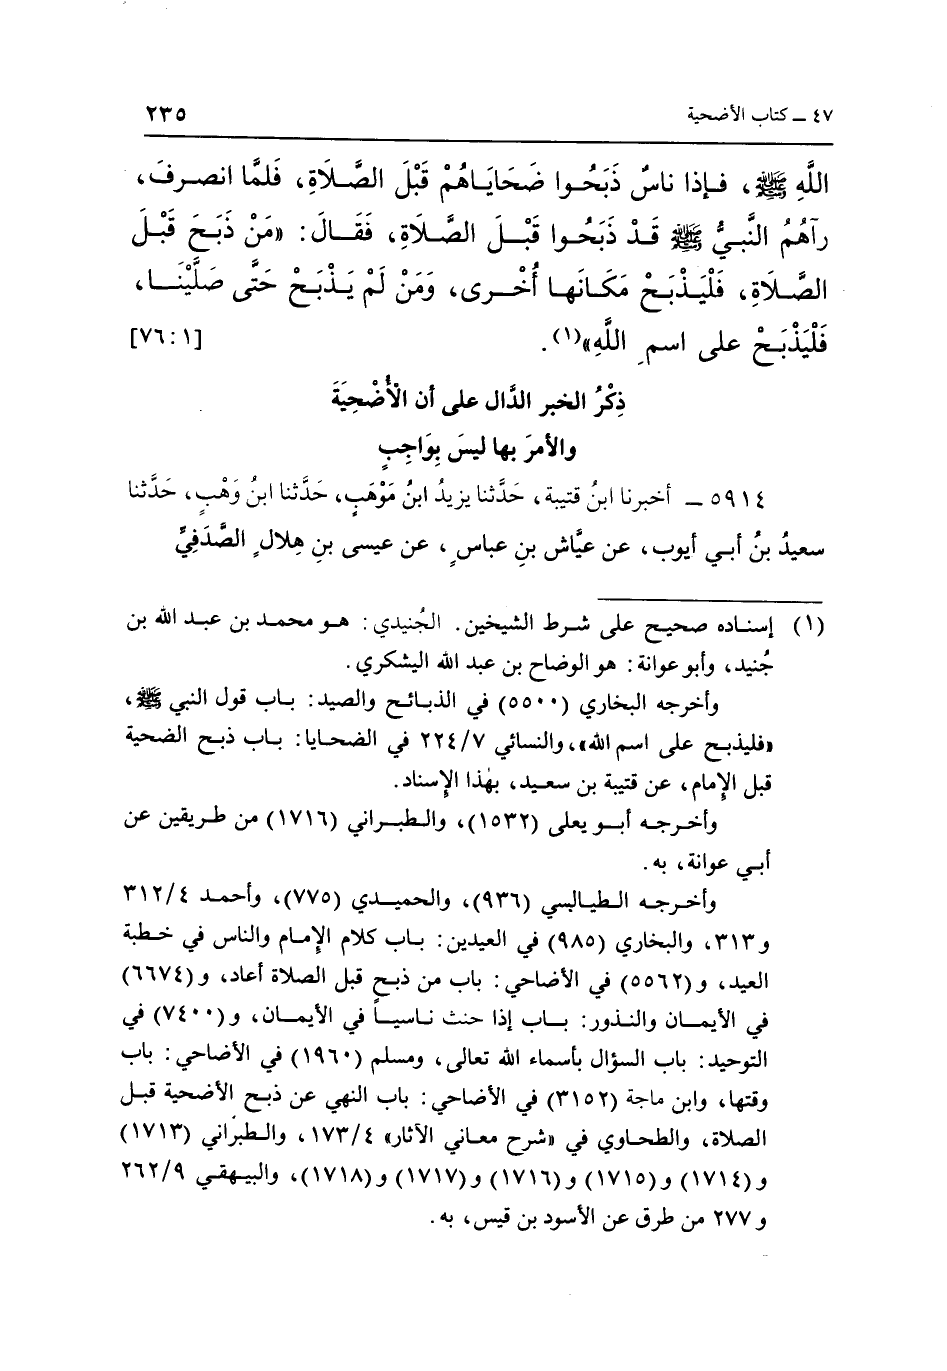 ٤٧ ــ كتاب الأضحية ٢٣٥
اللَّهِ ﷺ، فإذا ناسٌ ذَبَحُوا ضَحَايَاهُمْ قَبْلَ الصَّلَاةِ، فَلمَّا انصرفَ،
رآهُمُ النَّبيُّ ﷺ قَدْ ذَبَحُوا قَبْلَ الصَّلَاةِ، فَقَالَ: «مَنْ ذَبَحَ قَبْلَ
الصَّلَاةِ، فَلْيَذْبَحْ مَكَانَها أُخْرى، وَمَنْ لَمْ يَذْبَحْ حَتَّى صَلَّيْنَا،
فَلْيَذْبَحْ على اسمِ اللَّهِ»(١). [٧٦:١]
ذِكْرُ الخبر الدَّال على أن الْأُضْحِيَةَ
والأمرَ بها ليسَ بِوَاجِبٍ
٥٩١٤ ــ أخبرنا ابنُ قتيبة، حَدَّثنا يزيدُ ابنُ مَوْهَبٍ، حَدَّثنا ابنُ وَهْبٍ، حَدَّثنا
سعيدُ بنُ أبي أيوب، عن عيَّاش بنِ عباسٍ، عن عيسى بنِ هِلالٍ الصَّدَفيِّ
(١) إسناده صحيح على شرط الشيخين. الجُنيدي: هو محمد بن عبد الله بن
جُنيد، وأبو عوانة: هو الوضاح بن عبد الله اليشكري.
وأخرجه البخاري (٥٥٠٠) في الذبائح والصيد: باب قول النبي ﷺ،
«فليذبح على اسم الله»، والنسائي ٢٢٤/٧ في الضحايا: باب ذبح الضحية
قبل الإمام، عن قتيبة بن سعيد، بهٰذا الإسناد.
وأخرجه أبو يعلى (١٥٣٢)، والطبراني (١٧١٦) من طريقين عن
أبي عوانة، به.
وأخرجه الطيالسي (٩٣٦)، والحميدي (٧٧٥)، وأحمد ٣١٢/٤
و٣١٣، والبخاري (٩٨٥) في العيدين: باب كلام الإمام والناس في خطبة
العيد، و(٥٥٦٢) في الأضاحي: باب من ذبح قبل الصلاة أعاد، و(٦٦٧٤)
في الأيمان والنذور: باب إذا حنث ناسياً في الأيمان، و(٧٤٠٠) في
التوحيد: باب السؤال بأسماء الله تعالى، ومسلم (١٩٦٠) في الأضاحي: باب
وقتها، وابن ماجة (٣١٥٢) في الأضاحي: باب النهي عن ذبح الأضحية قبل
الصلاة، والطحاوي في «شرح معاني الآثار» ١٧٣/٤، والطبراني (١٧١٣)
و(١٧١٤) و(١٧١٥) و(١٧١٦) و(١٧١٧) و(١٧١٨)، والبيهقي ٢٦٢/٩
و٢٧٧ من طرق عن الأسود بن قيس، به.